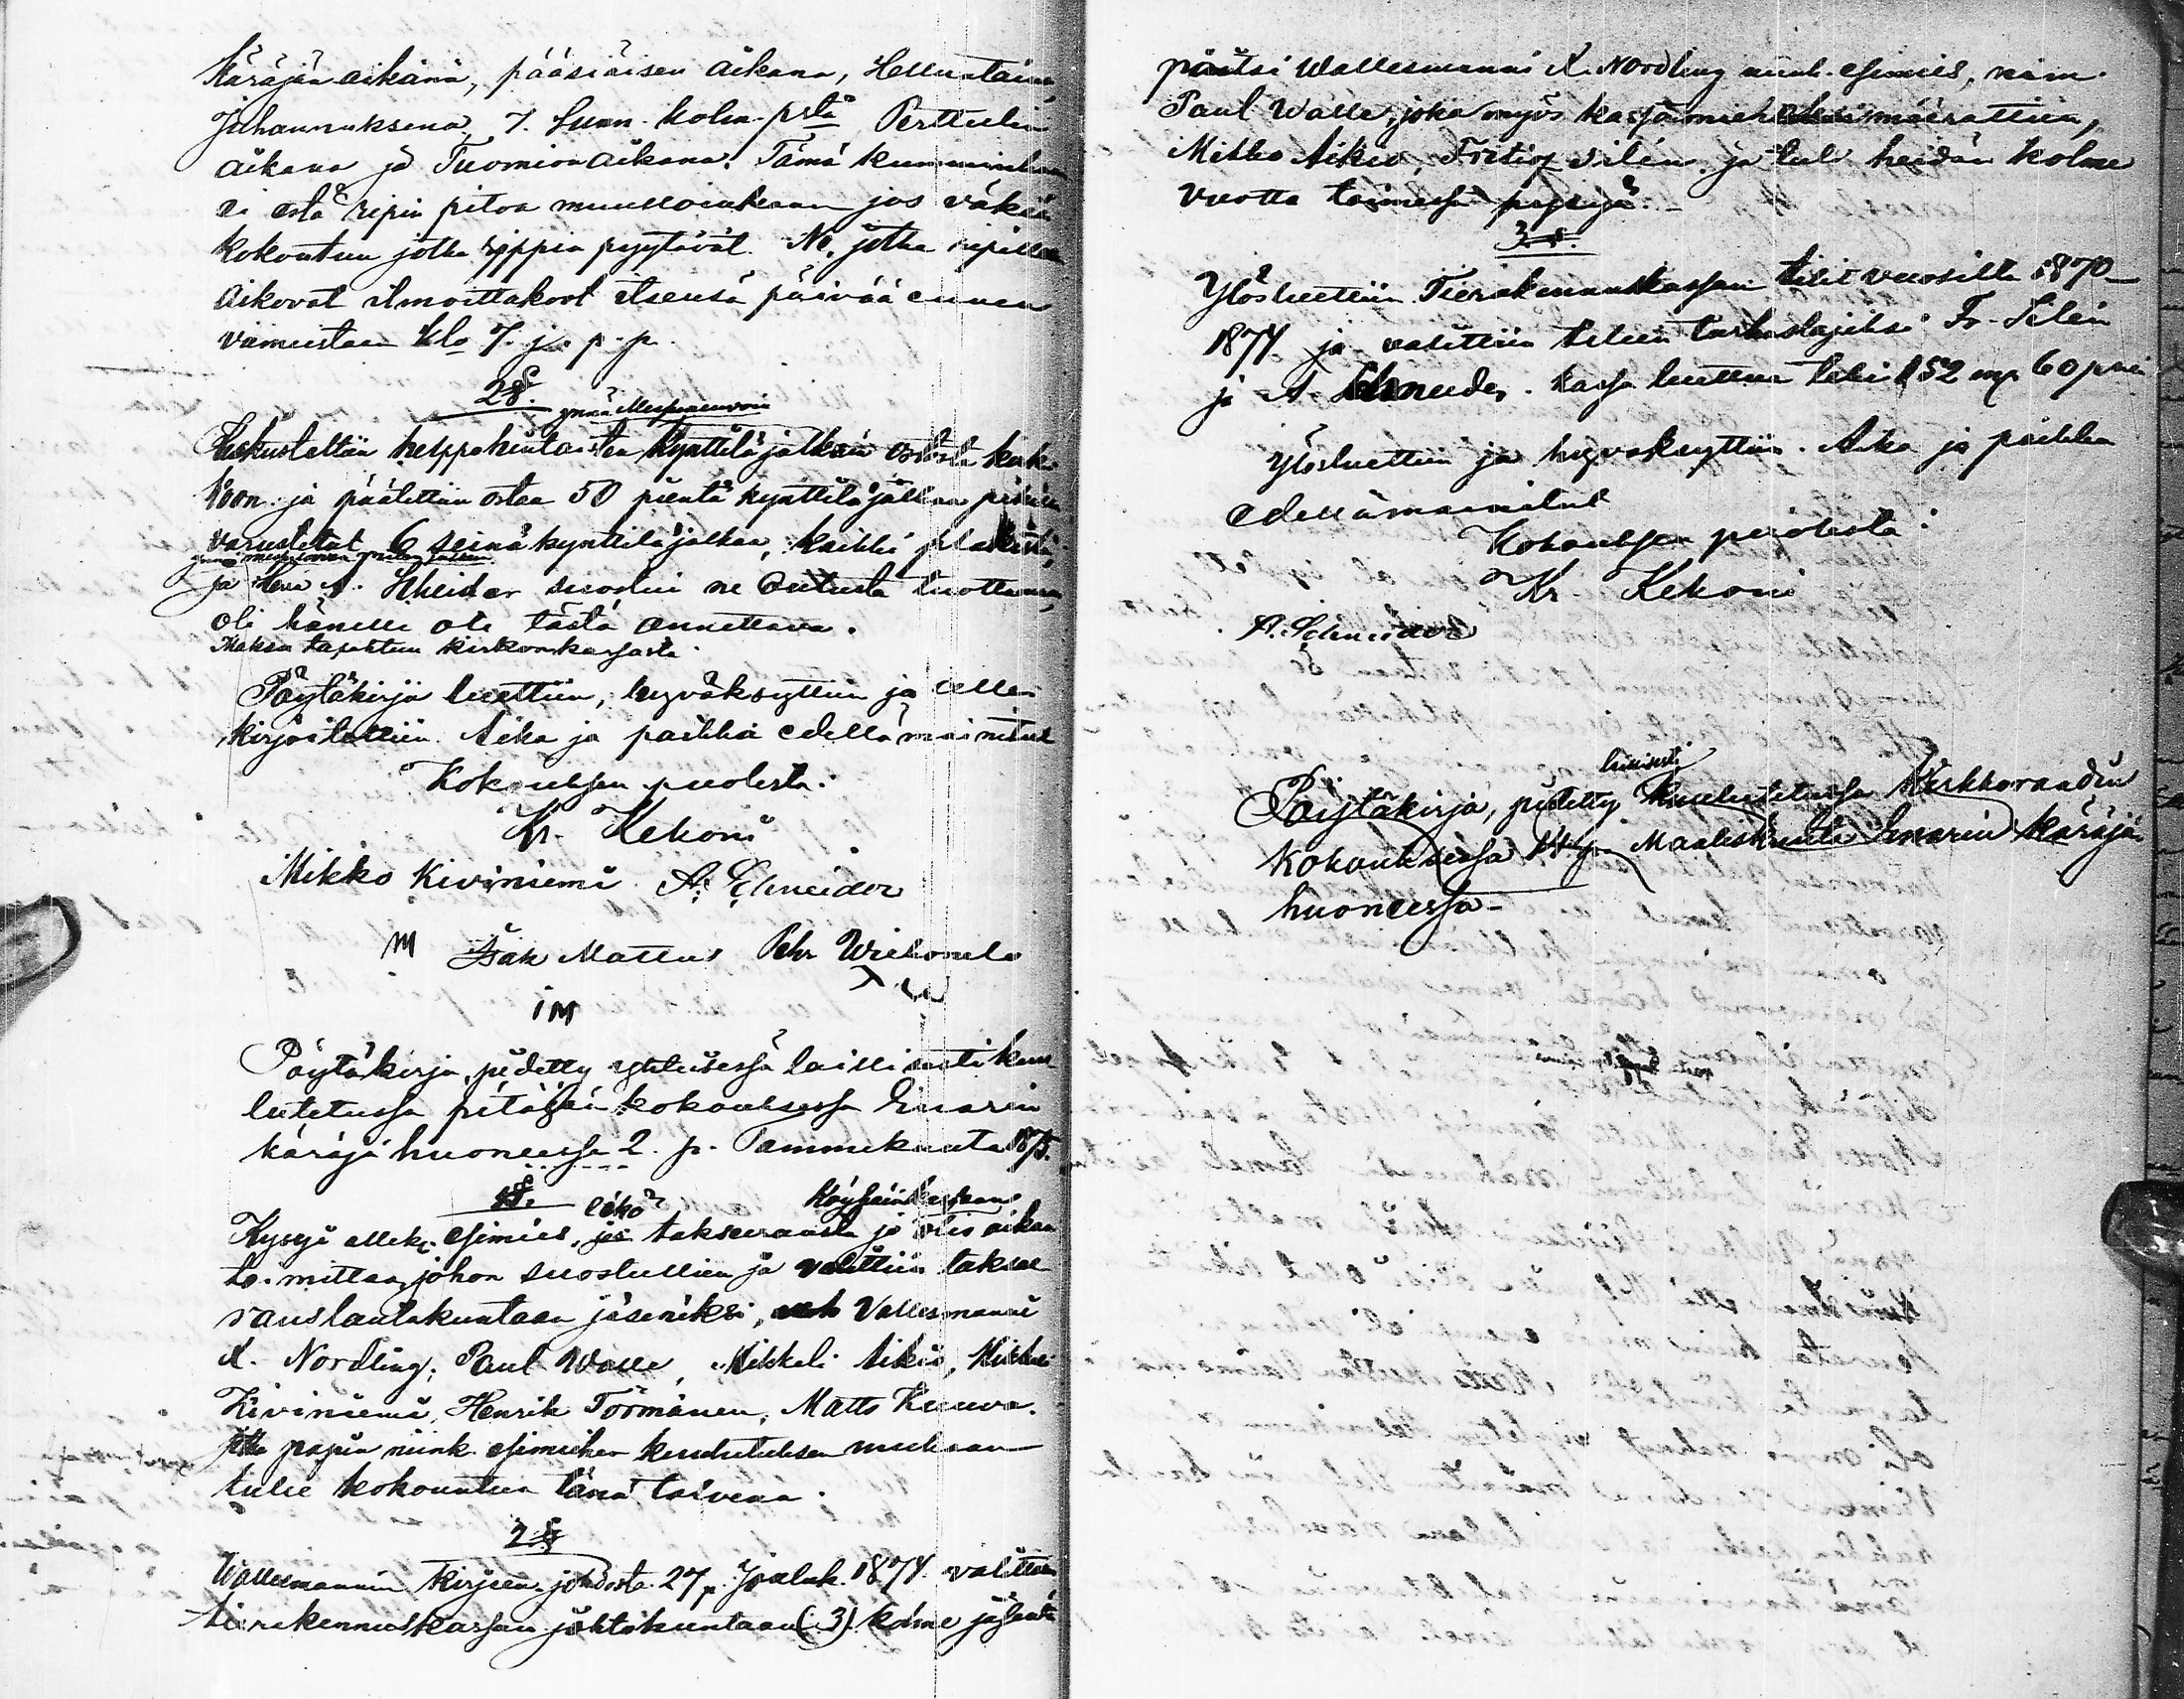 Käräjän aikana, pääsiäisen aikana, Helluntaina,
Juhannuksena, 7. Sunn. kolm. p:stä Perttulin
aikana ja Tuomion aikana. Tämä kumminkaan
ei estä ripin pitoa muulloinkaan jos väkeä
kokoutuu jotka rippiä pyytävät. Ne, jotka ripille
aikovat ilmoittakoot itsensä päivää ennen
viimeistään klo 7. j. p. p.
2§.
ynnä
Keskusteltiin helppohintaisten kynttiläjalkain ostosta kirk-
koon ja päätettiin ostaa 50 pientä kynttiläjalkaa
varustetut 6 seinäkynttiläjalkaa, kaikki
ja Herr A. Schneider suostui ne Oulusta tuottamaan,
oli hänelle ote tästä annettava.
Maksu tapahtuu kirkonkassasta.
Pöytäkirja luettiin, hyväksyttiin ja allen
kirjoitettiin. Aika ja paikka edellämainitut
Kokouksen puolesta:
Kr. Kekoni
Mikko Kiviniemi A. Schneider
M Isak Mattus Pehr Wiekoula
IM
Pöytäkirja, pidetty yhteisessä laillisesti kuu-
lutetussa pitäjän kokouksessa Inarin
käräjähuoneessa 2. p. Tammikuuta 1875.
1§.
eikö Köyhäinkassaan
Kysyi allek. esimies, takseerausta jo olis aika
toimittaa, johon suostuttiin ja valittiin taksee-
rauslautakuntaan jäseniksi, Vallesmanni
K. Nordling, Paul Walle, Mikkeli Aikio, Mikkeli
Kiviniemi, Henrik Törmänen, Matts Kuuva.
jotka papin niink. esimiehen kuulutuksen mukaan
tulee kokountua tänä talvena.
2§
Wallesmannin kirjeen johdosta 27 p. Jouluk. 1874. valittiin
tierakennuskassan johtokuntaan (3) kolme jäsentä
paitsi Wallesmanni K. Nordling niink. esimies, nim.
Paul Walle, joka myös kassamieheksi määrättiin,
Mikko Aikio, Fritiof Silén ja tuli heidän kolme
vuotta toimessa pysyä.
3§.
Ylösluettiin Tierakennuskassan tilit vuosilta 1870-
1874 ja valittiin tilein tarkastajiksi Fr. Silén
ja A. Schneider. Kassa luettua teki 152 mp 60 pniä
Ylösluettiin ja hyväksyttiin. Aika ja paikka
edellämainitut
Kokouksen puolesta:
Kr. Kekoni
A. Schneider
laillisesti
Pöytäkirja, pidetty kuulutetussa Kirkkoraadin
kokouksessa Maaliskuuta Inarin käräjä-
huoneessa-